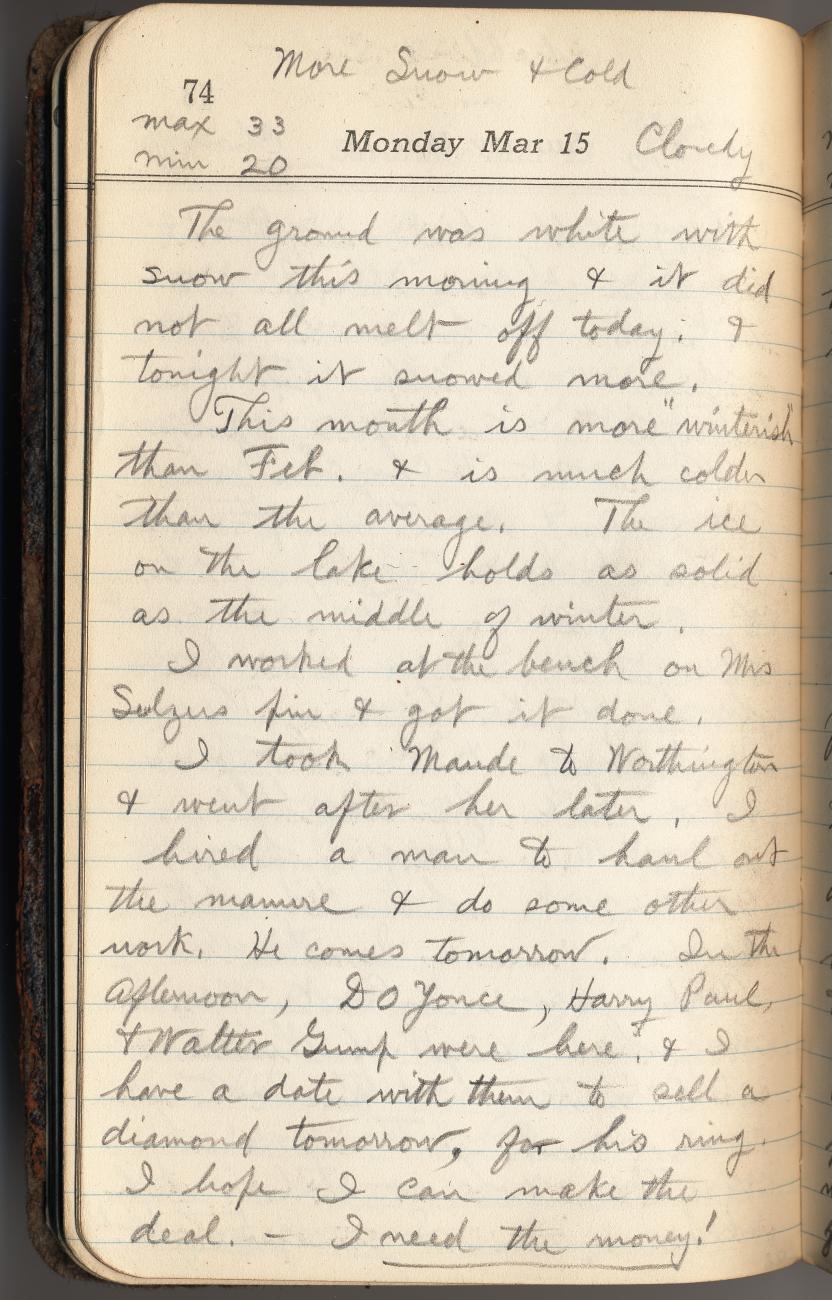 More Snow & Cold
74
max 33
Monday Mar 15 Cloudy
min 20
The ground was white with
snow this morning & it did
not all melt off today; &
tonight it snowed more.
This month is more "winterish"
than Feb. & is much colder
than the average. The ice
on the lake holds as solid
as the middle of winter.
I worked at the bench on Mrs
Sulzers pin & got it done.
I took Maude to Worthington
& went after her later. I
hired a man to haul out
the manure & do some other
work. He comes tomorrow. In the
Afternoon, D O Yonce, Harry Paul,
& Walter Gump were here, & I
have a date with them to sell a
diamond tomorrow, for his ring.
I hope I can make the
deal. - I need the money!